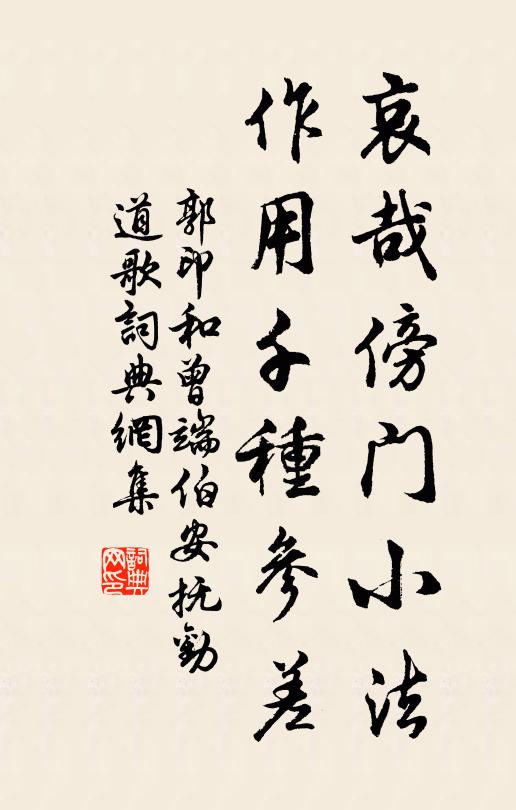 哀哉傍门小法
作用千種參差
郭印和曾端伯安抚勸
道歌詞典網集
詞典网印